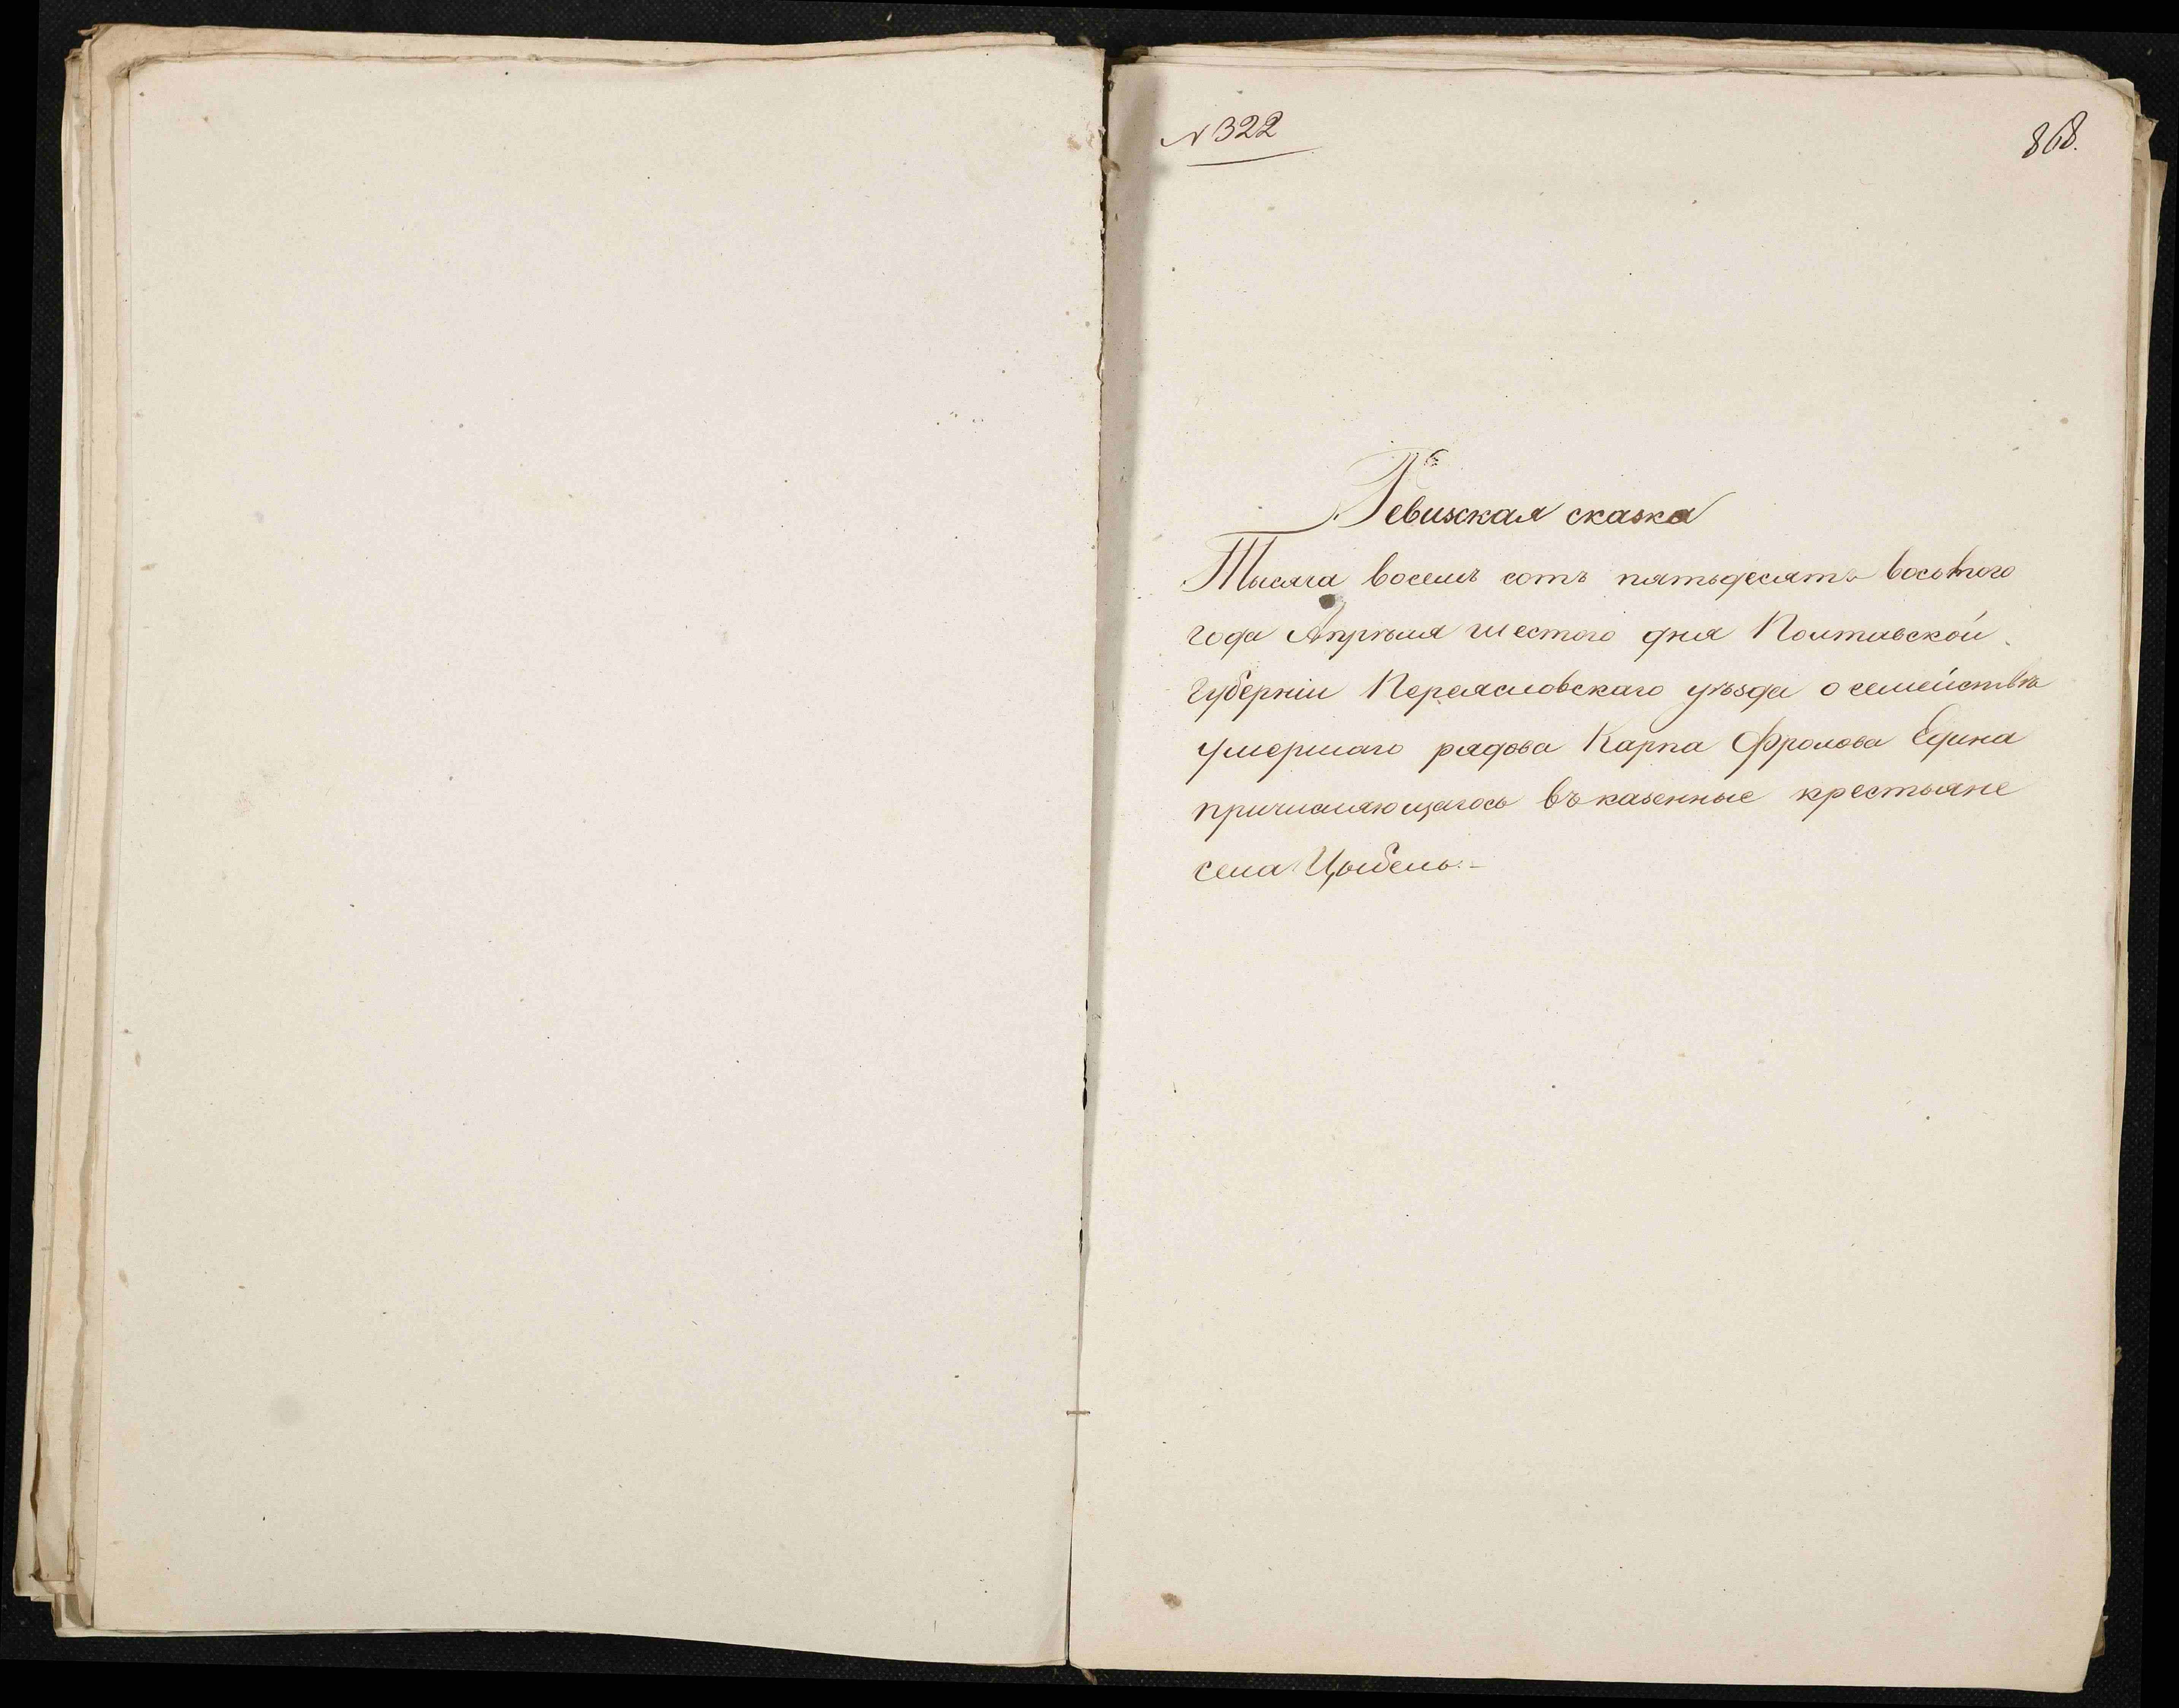 N 322
868.
Ревизская сказка
Тысяча восемь сотъ пятьдесятъ восьмого
года Апрѣля шестого дня Полтавской
Губерніи Переясловскаго уѣзда о семействѣ
умершаго рядова Карпа Фролова Едина
причисляющагось въ казенные крестьяне
села Цыбель.-